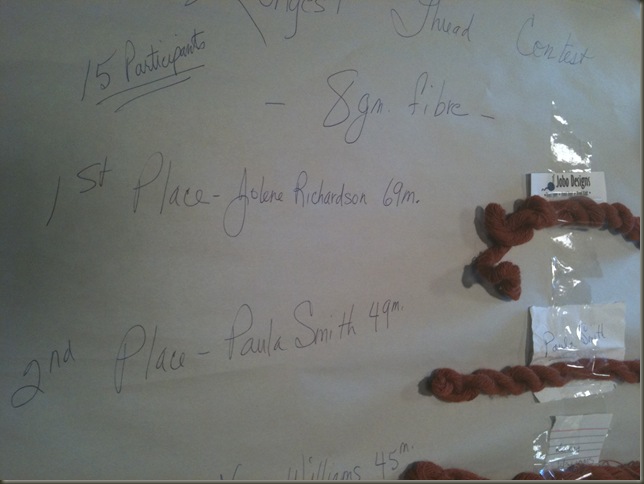 Longest Thread Contest
15 Participants
- 8 gm. fibre -
1st Place - Jolene Richardson 69m.
Jobo Designs
2nd Place - Paula Smith 49m.
Paula Smith
Williams 45m.